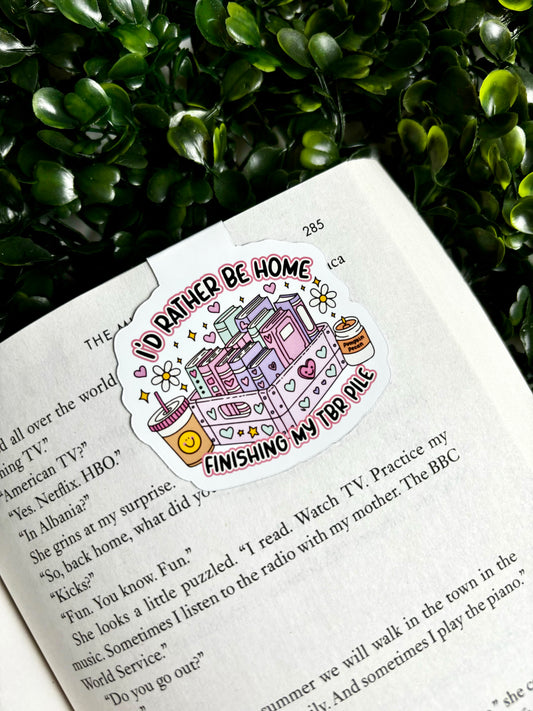 285
THE M
ica
I'D RATHER BE HOME
Pumpkin
Pecan
FINISHING MY TBR PILE
d all over the world
ning TV."
"American TV?"
"Yes. Netflix. HBO."
"In Albania?"
She grins at my surprise.
"So, back home, what did yo
"Kicks?"
"Fun. You know. Fun."
She looks a little puzzled. "I read. Watch TV. Practice my
music. Sometimes I listen to the radio with my mother. The BBC
World Service."
"Do you go out?"
summer we will walk in the town in the
ily. And sometimes I play the piano."
" she c